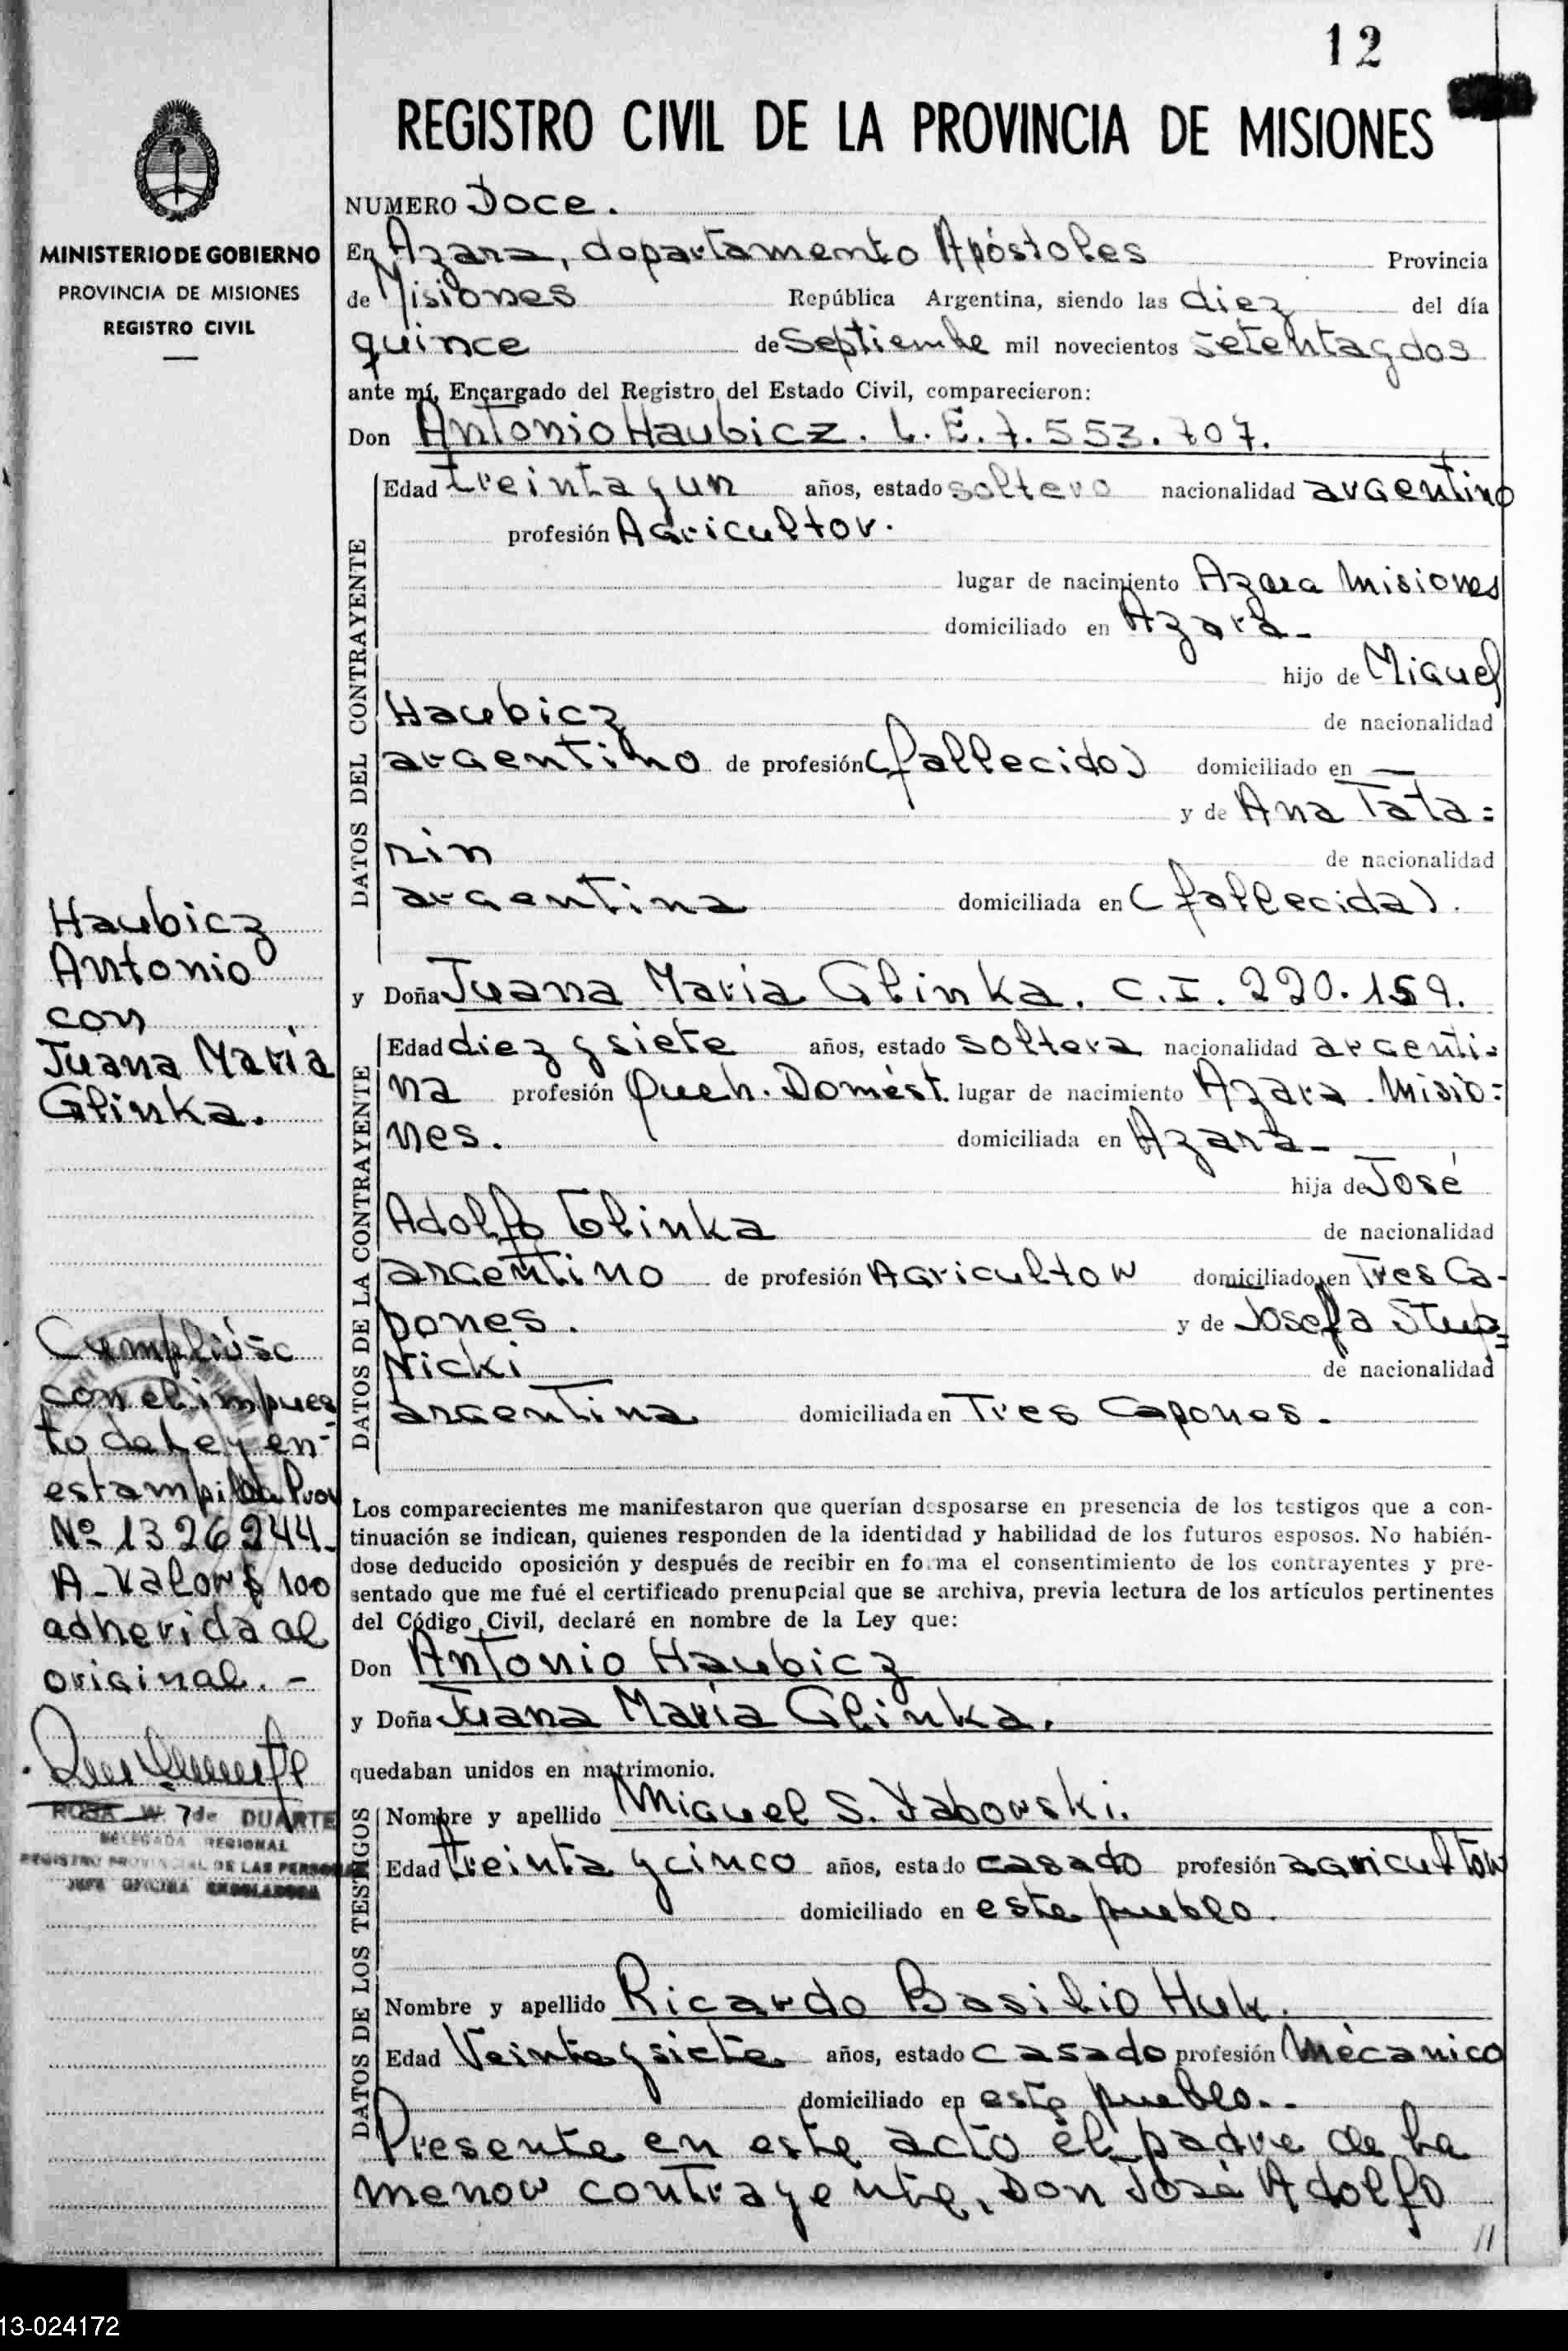 12
REGISTRO CIVIL DE LA PROVINCIA DE MISIONES
MINISTERIO DE GOBIERNO
PROVINCIA DE MISIONES
REGISTRO CIVIL
NUMERO Doce.
En Azara, departamento Apóstoles Provincia
de Misiones República Argentina, siendo las diez del día
quince de Septiembre mil novecientos setentaydos
ante mí, Encargado del Registro del Estado Civil, comparecieron:
Don Antonio Haubicz. L.E.7.553.707.
DATOS DEL CONTRAYENTE
Edad treinta y un años, estado soltero nacionalidad argentino
profesión Agricultor.
lugar de nacimiento Azara Misiones
domiciliado en Azara-
hijo de Miguel
Haubicz de nacionalidad
argentino de profesión (fallecido) domiciliado en —
y de Ana Tata=
rin de nacionalidad
argentina domiciliada en (fallecida).
y Doña Juana María Glinka. C.I. 220.159.
DATOS DE LA CONTRAYENTE
Edad diez y siete años, estado soltera nacionalidad argenti=
na profesión Queh. Domést. lugar de nacimiento Azara. Misio=
nes. domiciliada en Azara-
hija de José
Adolfo Glinka de nacionalidad
argentino de profesión Agricultor domiciliado en Tres Ca-
pones. y de Josefa Stup=
Nicki de nacionalidad
argentina domiciliada en Tres Capones.
Los comparecientes me manifestaron que querían desposarse en presencia de los testigos que a con-
tinuación se indican, quienes responden de la identidad y habilidad de los futuros esposos. No habién-
dose deducido oposición y después de recibir en forma el consentimiento de los contrayentes y pre-
sentado que me fué el certificado prenupcial que se archiva, previa lectura de los artículos pertinentes
del Código Civil, declaré en nombre de la Ley que:
Don Antonio Haubicz
y Doña Juana María Glinka.
quedaban unidos en matrimonio.
DATOS DE LOS TESTIGOS
Nombre y apellido Miguel S. Yabowski.
Edad treinta y cinco años, estado casado profesión agricultor
domiciliado en este pueblo.
Nombre y apellido Ricardo Basilio Huk.
Edad Veinte y siete años, estado casado profesión Mécanico
domiciliado en este pueblo.-
Presente en este acto el padre de la
menor contrayente, Don José Adolfo
//
Haubicz
Antonio
con
Juana María
Glinka.
Cumplióse
con el impues
to de Ley en-
estampilla Prov
Nº 1326244-
A-Valor $ 100
adherida al
original. -
ROSA W. 7de DUARTE
DELEGADA REGIONAL
REGISTRO PROVINCIAL DE LAS PERSONAS
JEFE OFICINA ENROLADORA
13-024172